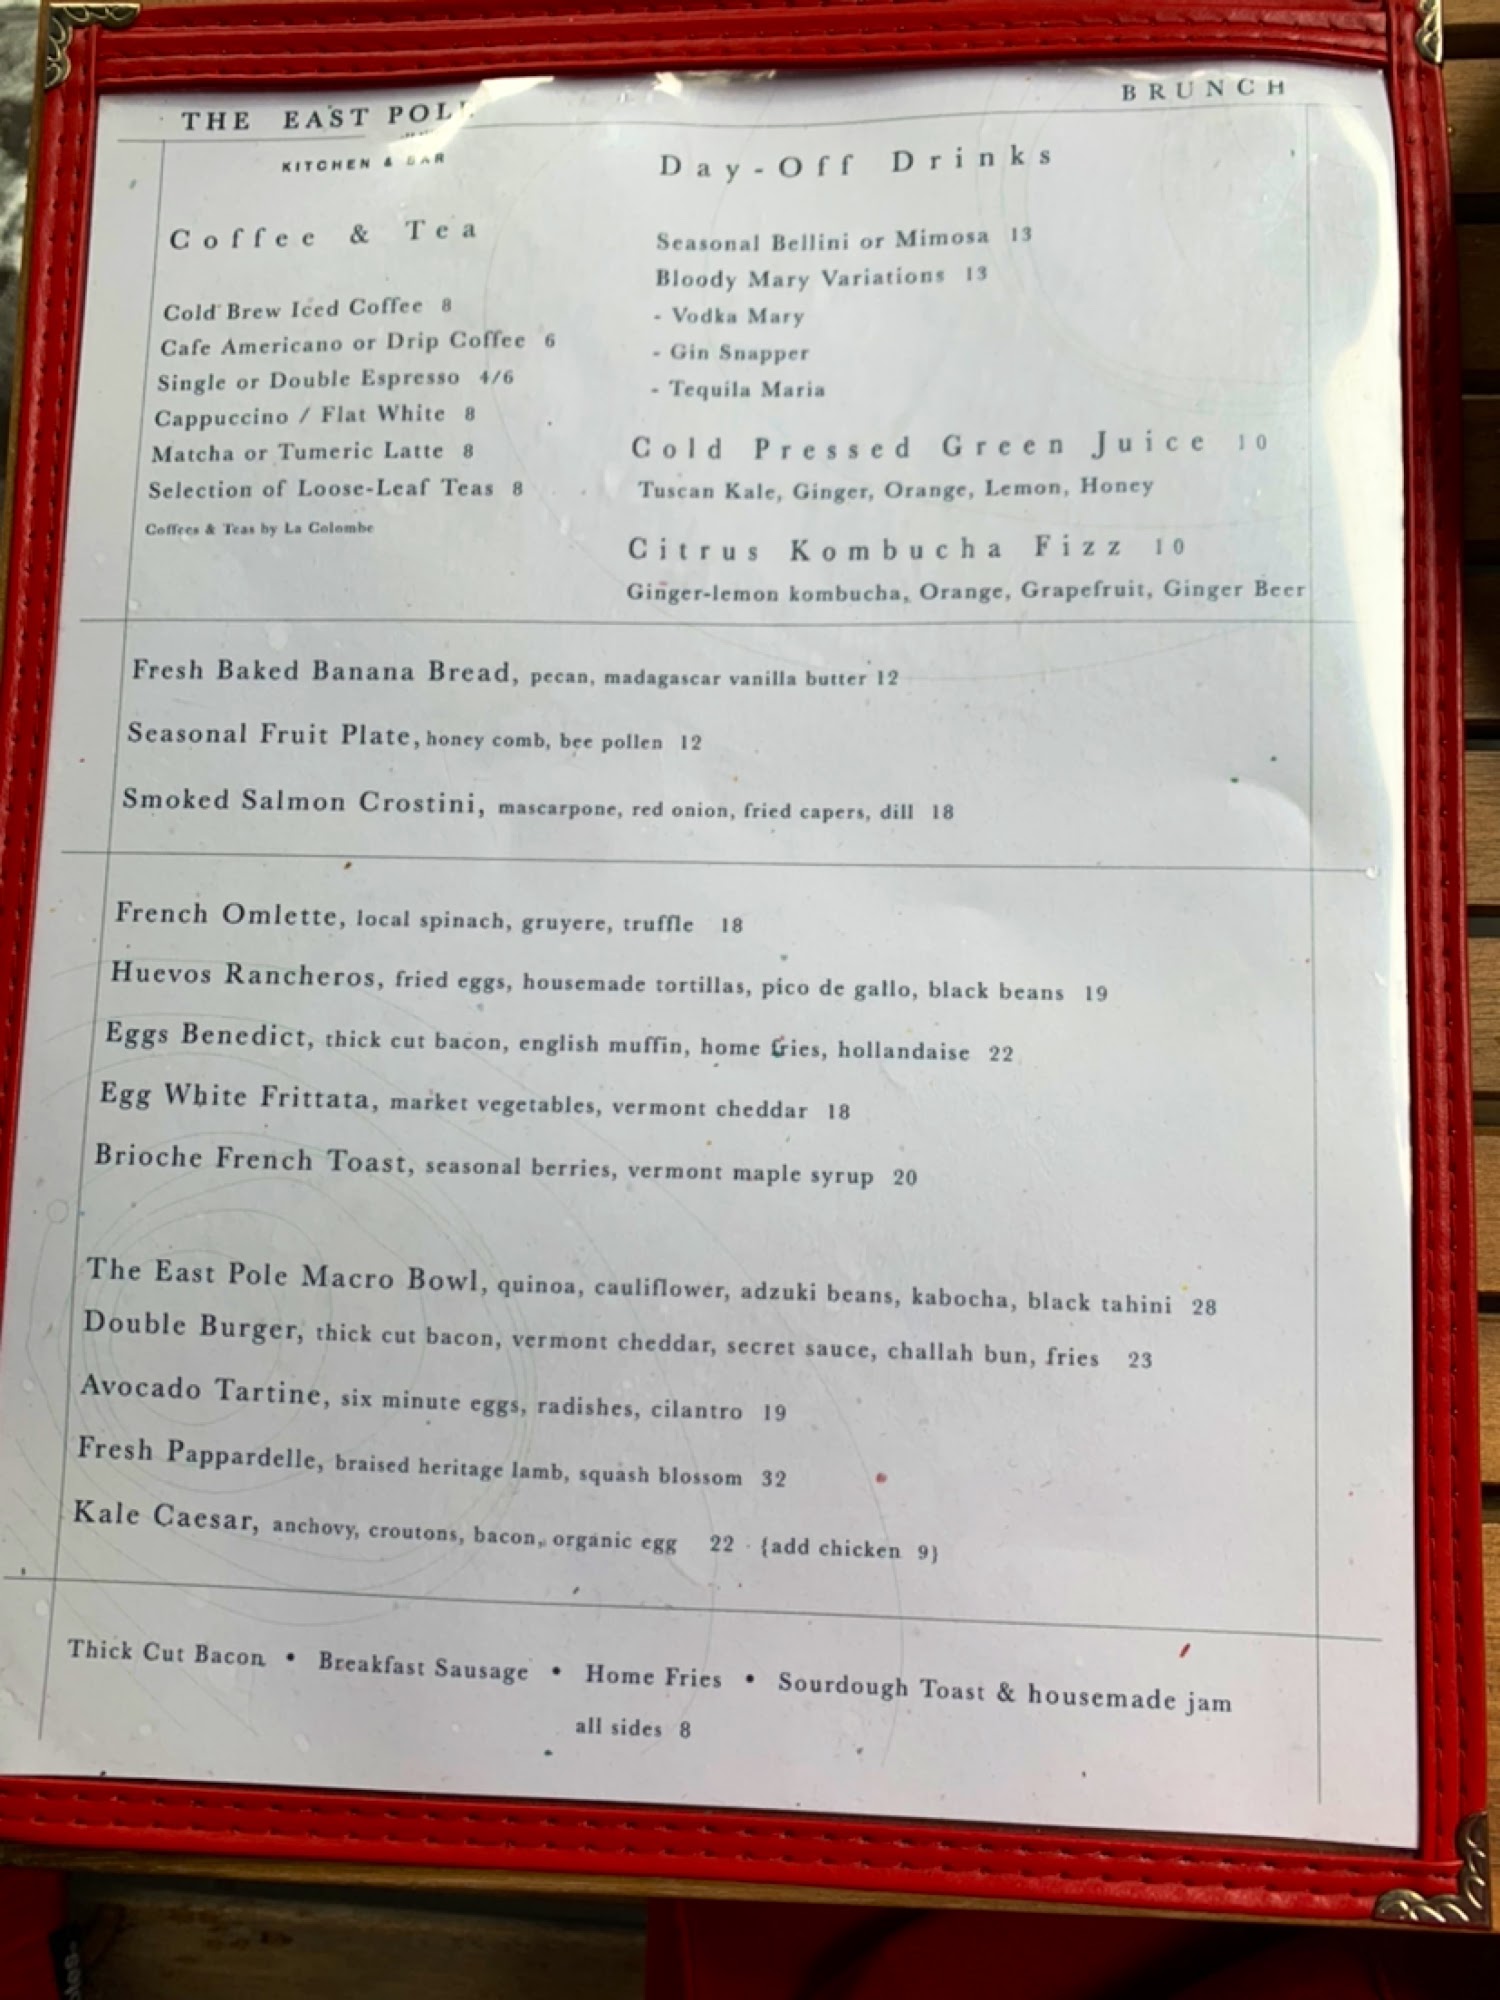 THE EAST POL
BRUNCH
KITCHEN & BAR
Coffee & Tea
Cold Brew Iced Coffee 8
Cafe Americano or Drip Coffee 6
Single or Double Espresso 4/6
Cappuccino / Flat White 8
Matcha or Tumeric Latte 8
Selection of Loose-Leaf Teas 8
Coffees & Teas by La Colombe
Day-Off Drinks
Seasonal Bellini or Mimosa 13
Bloody Mary Variations 13
- Vodka Mary
- Gin Snapper
- Tequila Maria
Cold Pressed Green Juice 10
Tuscan Kale, Ginger, Orange, Lemon, Honey
Citrus Kombucha Fizz 10
Ginger-lemon kombucha, Orange, Grapefruit, Ginger Beer
Fresh Baked Banana Bread, pecan, madagascar vanilla butter 12
Seasonal Fruit Plate, honey comb, bee pollen 12
Smoked Salmon Crostini, mascarpone, red onion, fried capers, dill 18
French Omlette, local spinach, gruyere, truffle 18
Huevos Rancheros, fried eggs, housemade tortillas, pico de gallo, black beans 19
Eggs Benedict, thick cut bacon, english muffin, home fries, hollandaise 22
Egg White Frittata, market vegetables, vermont cheddar 18
Brioche French Toast, seasonal berries, vermont maple syrup 20
The East Pole Macro Bowl, quinoa, cauliflower, adzuki beans, kabocha, black tahini 28
Double Burger, thick cut bacon, vermont cheddar, secret sauce, challah bun, fries 23
Avocado Tartine, six minute eggs, radishes, cilantro 19
Fresh Pappardelle, braised heritage lamb, squash blossom 32
Kale Caesar, anchovy, croutons, bacon, organic egg 22 {add chicken 9}
Thick Cut Bacon • Breakfast Sausage • Home Fries • Sourdough Toast & housemade jam
all sides 8